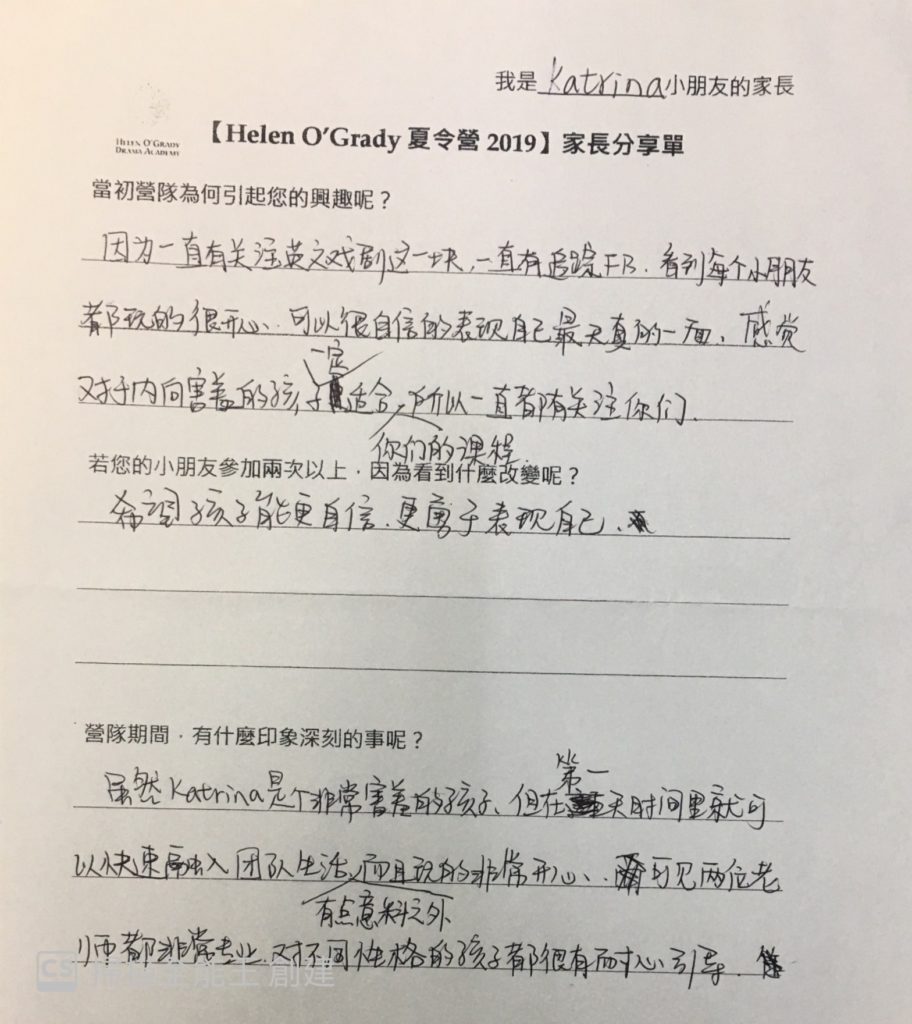 我是 Katrina 小朋友的家長
HELEN O'GRADY
DRAMA ACADEMY
【Helen O'Grady 夏令營 2019】家長分享單
當初營隊為何引起您的興趣呢？
因为一直有关注英文戏剧这一块，一直有追踪FB. 看到每个小朋友
都玩的很开心. 可以很自信的表现自己最天真的一面. 感觉
一定
对于内向害羞的孩子适合. 所以一直都有关注你们.
你们的课程.
若您的小朋友參加兩次以上，因為看到什麼改變呢？
希望孩子能更自信. 更勇于表现自己.
營隊期間，有什麼印象深刻的事呢？
第一
虽然Katrina是个非常害羞的孩子、但在天时间里就可
以快速融入团队生活, 而且玩的非常开心. 可见两位老
有点意料之外
师都非常专业. 对不同性格的孩子都很有耐心引导.
CS 掃描全能王創建